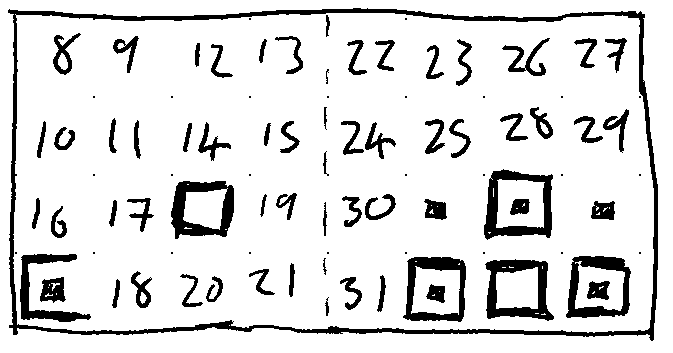 8 9 12 13 22 23 26 27
10 11 14 15 24 25 28 29
16 17 19 30
18 20 21 31